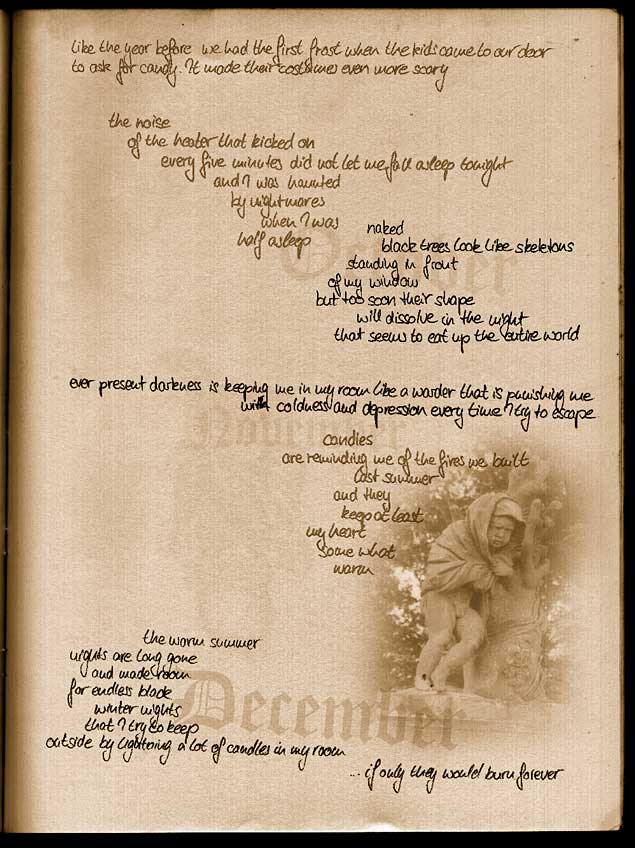 like the year before we had the first frost when the kids came to our door
to ask for candy. It made their costumes even more scary
the noise
of the heater that kicked on
every five minutes did not let me fall asleep tonight
and I was haunted
by nightmares
when I was
half asleep
October
naked
black trees look like skeletons
standing in front
of my window
but too soon their shape
will dissolve in the night
that seems to eat up the entire world
ever present darkness is keeping me in my room like a warder that is punishing me
with coldness and depression every time I try to escape
November
candles
are reminding me of the fires we built
last summer
and they
keep at least
my heart
some what
warm
the warm summer
nights are long gone
and made room
for endless black
winter nights
that I try to keep
outside by lightning a lot of candles in my room
December
... if only they would burn forever